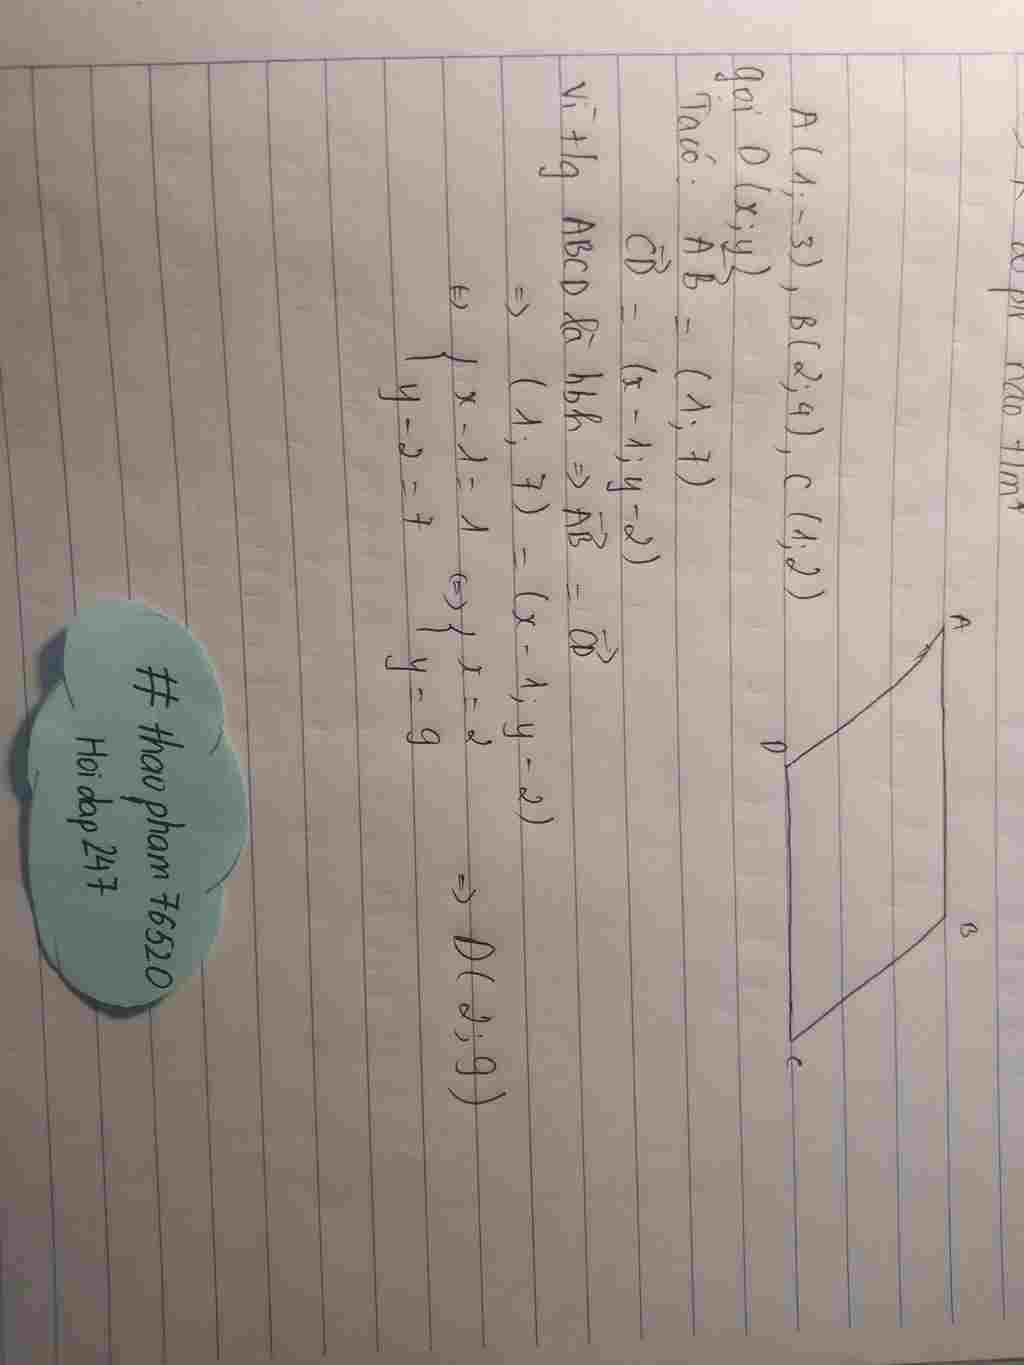 A(1;-3), B(2;4), C(1;2)
A
B
D
C
gọi D(x;y)
Ta có: AB = (1; 7)
CD = (x-1; y-2)
Vì tg ABCD là hbh => AB = CD
=> (1; 7) = (x-1; y-2)
<=> { x-1=1 <=> { x=2
{ y-2=7 { y=9 => D(2;9)
# thaopham76520
Hoidap247